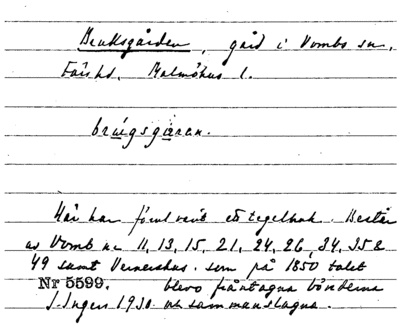 Bruksgården, gård i Vombs sn,
Färs hd, Malmöhus l.
brúigsgåren.
Här har förut varit ett tegelbruk. Består
av Vomb nr 11, 13, 15, 21, 24, 26, 34, 35 &
49 samt Vernershus. som på 1850 talet
Nr 5599. blevo fråntagna bönderna
S. Inger 1930. och sammanslagna.